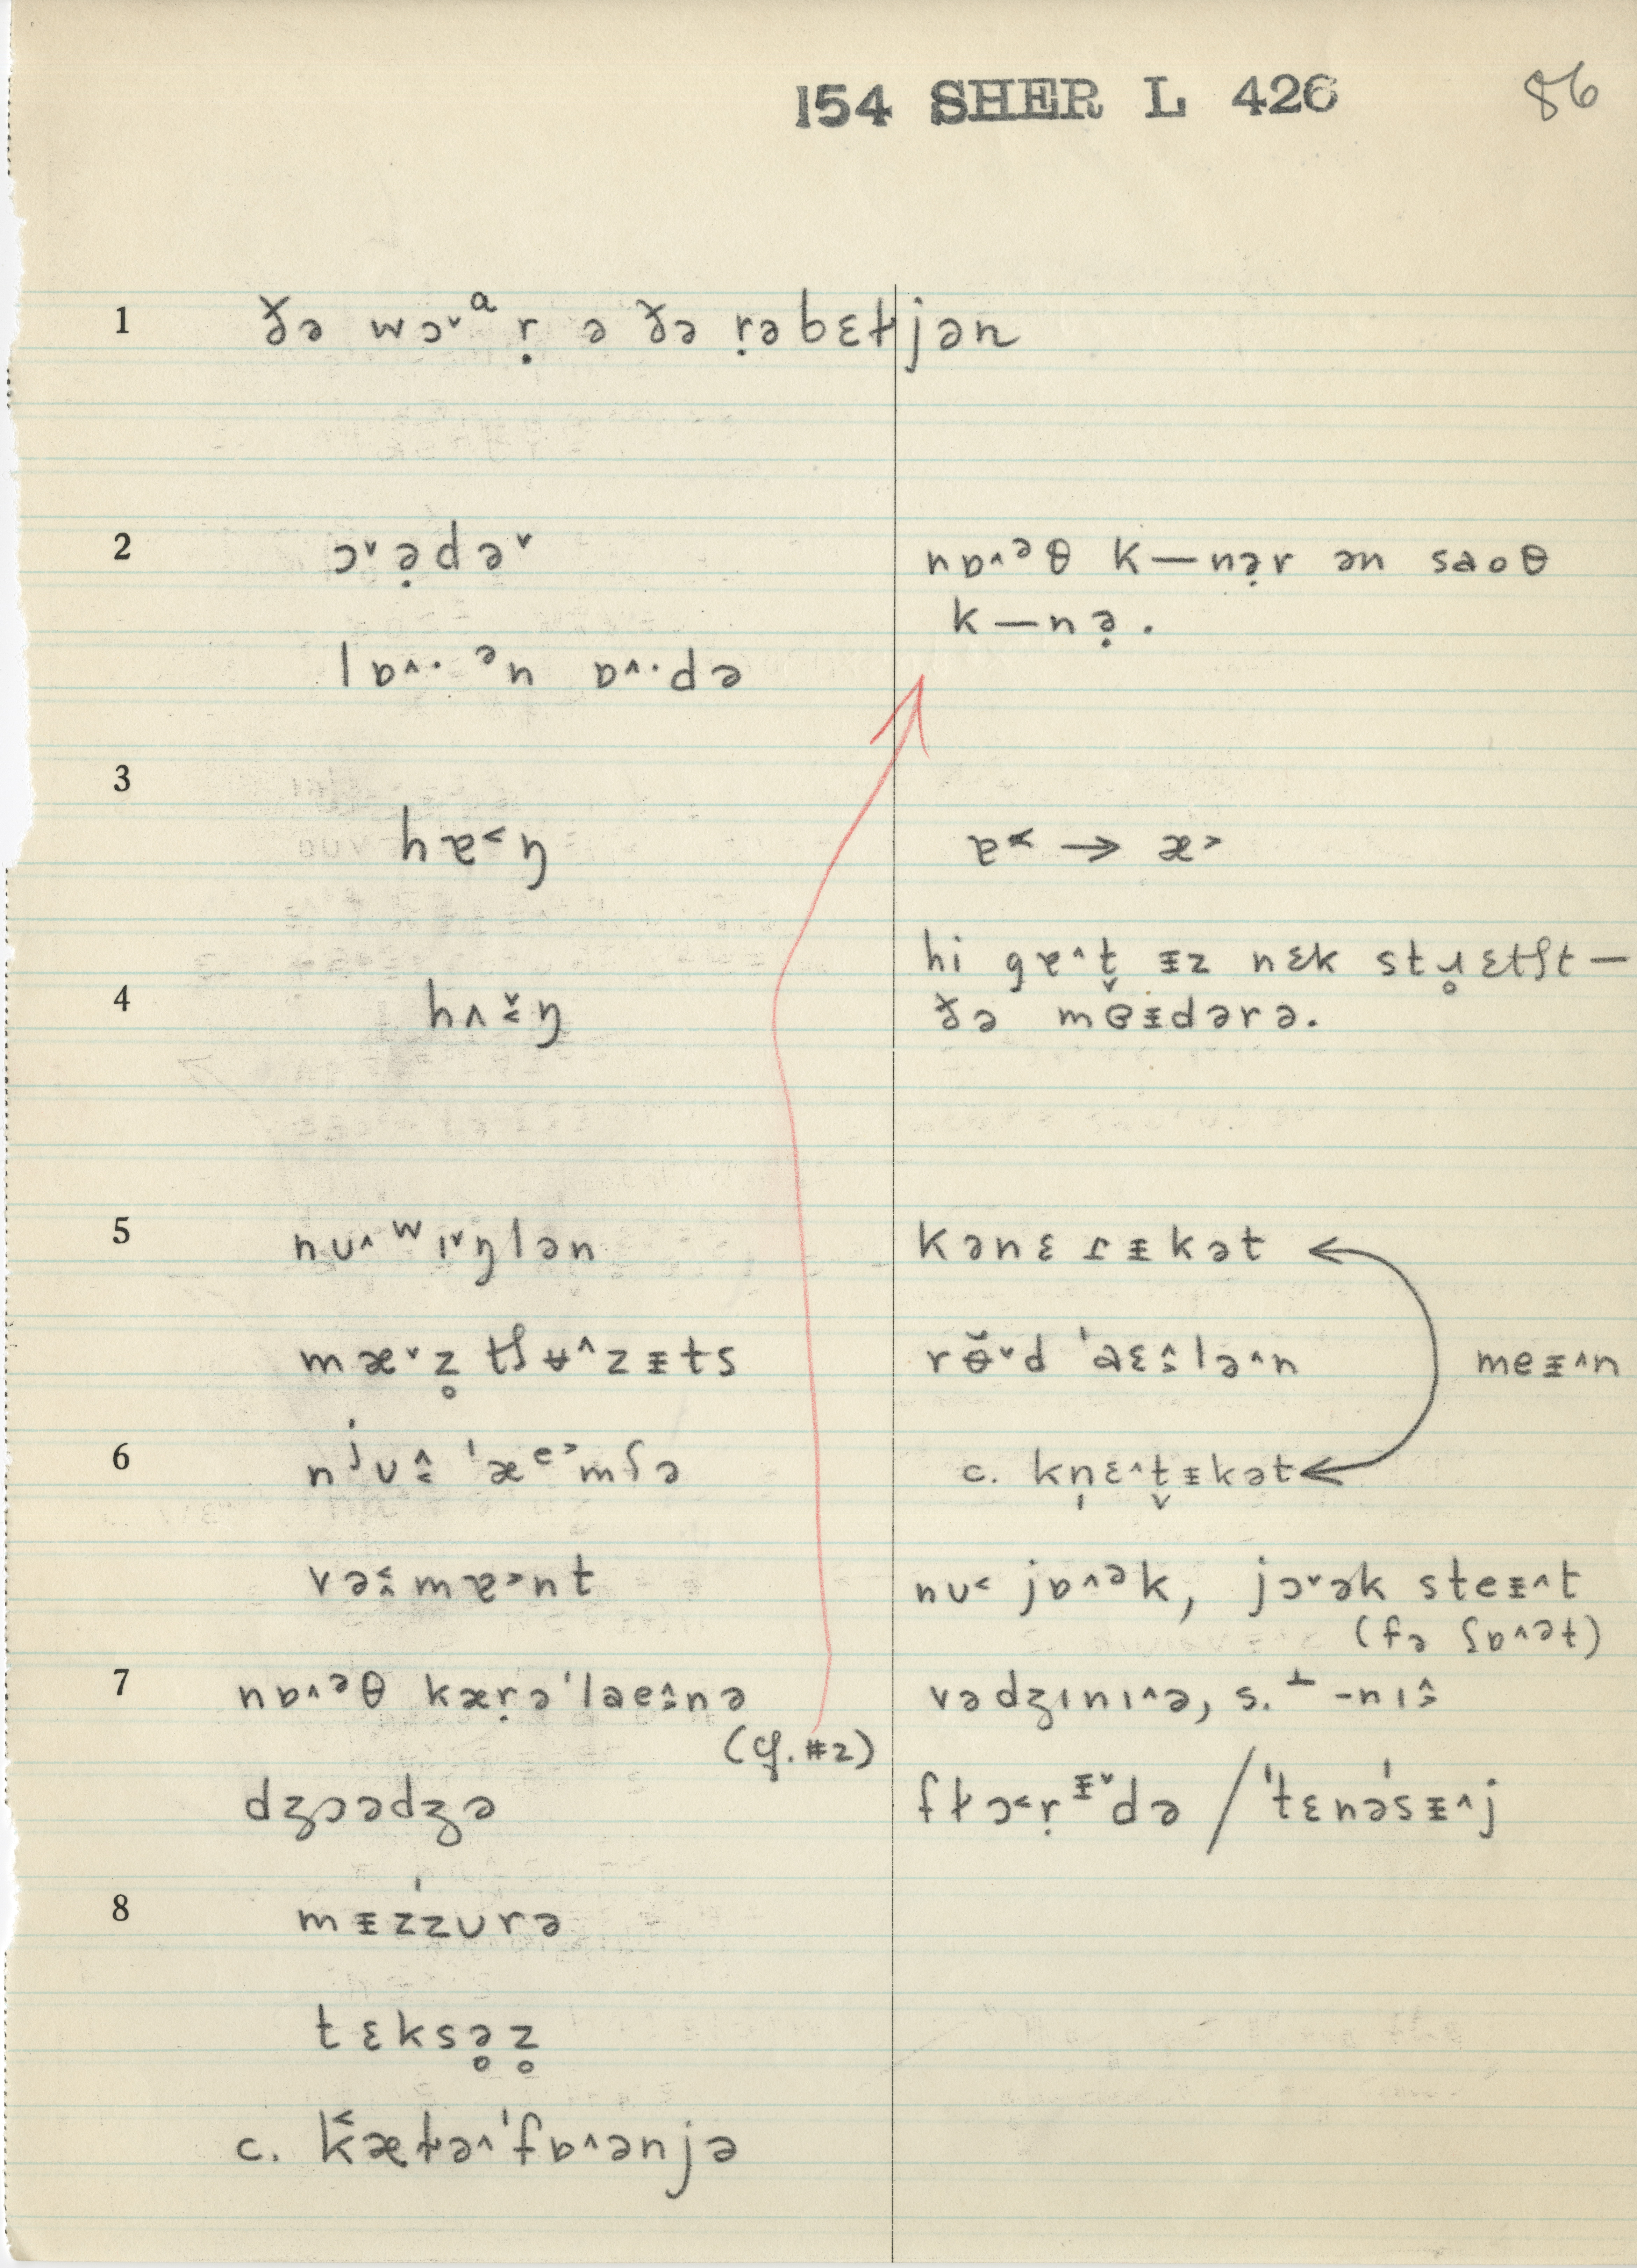 154 SHER L 426 86
1 ðə wɔ˅ᵃ ṛ ə ðə ṛəbɛɫjən
2 ɔ˅ə̣də˅ nɒ˄ᵊθ k—nə̣r ən saoθ
k—nə̣.
lɒ˄· ᵊn ɒ˄·də
3 hɐ˂ŋ ɐ˂ → æ˃
hi gɐ˄t̬ ᵻz nɛk stɹ̥ɛtʃt —
4 hʌ˅˂ŋ ðə mɵ̌ᵻdərə.
5 nʊ˄ʷɪ˅ŋlən kənɛɾᵻkət
mæ˅z̥ tʃʉ˄zᵻts rɵ̆˅d ˈaɛ˄˂lə˄n meᵻ˄n
6 nʲʊ˄˂ ˈæᵉ˃mʃə c. kn̩ɛ˄t̬ᵻkət
və˂˄mɐ˃nt nʊ˂ jɒ˄ᵊk, jɔ˅ək steᵻ˄t
(fə ʃɒ˄ət)
7 nɒ˄ᵊθ kæṛəˈlae˄˂nə vədʒɪnɪ˄ə, s. ˔ -nɪ˄˂
(cf. #2)
dʒɔədʒə fɫɔ˂ṛᵻ˅də / ˈtɛnəˈsᵻ˄j
8 mᵻzˈzʊrə
tɛksə̥z̥
c. k̟ætə˄ˈfɒ˄ənjə